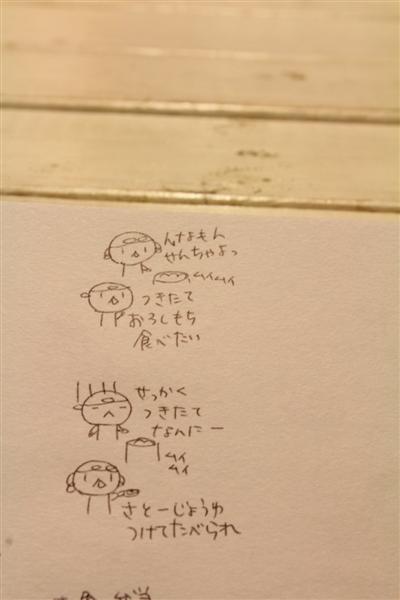 んなもん
せんちゃよっ
ムイムイ
つきたて
おろしもち
食べたい
せっかく
つきたて
なんにー
ムイ
ムイ
さとーじょうゆ
つけてたべられ